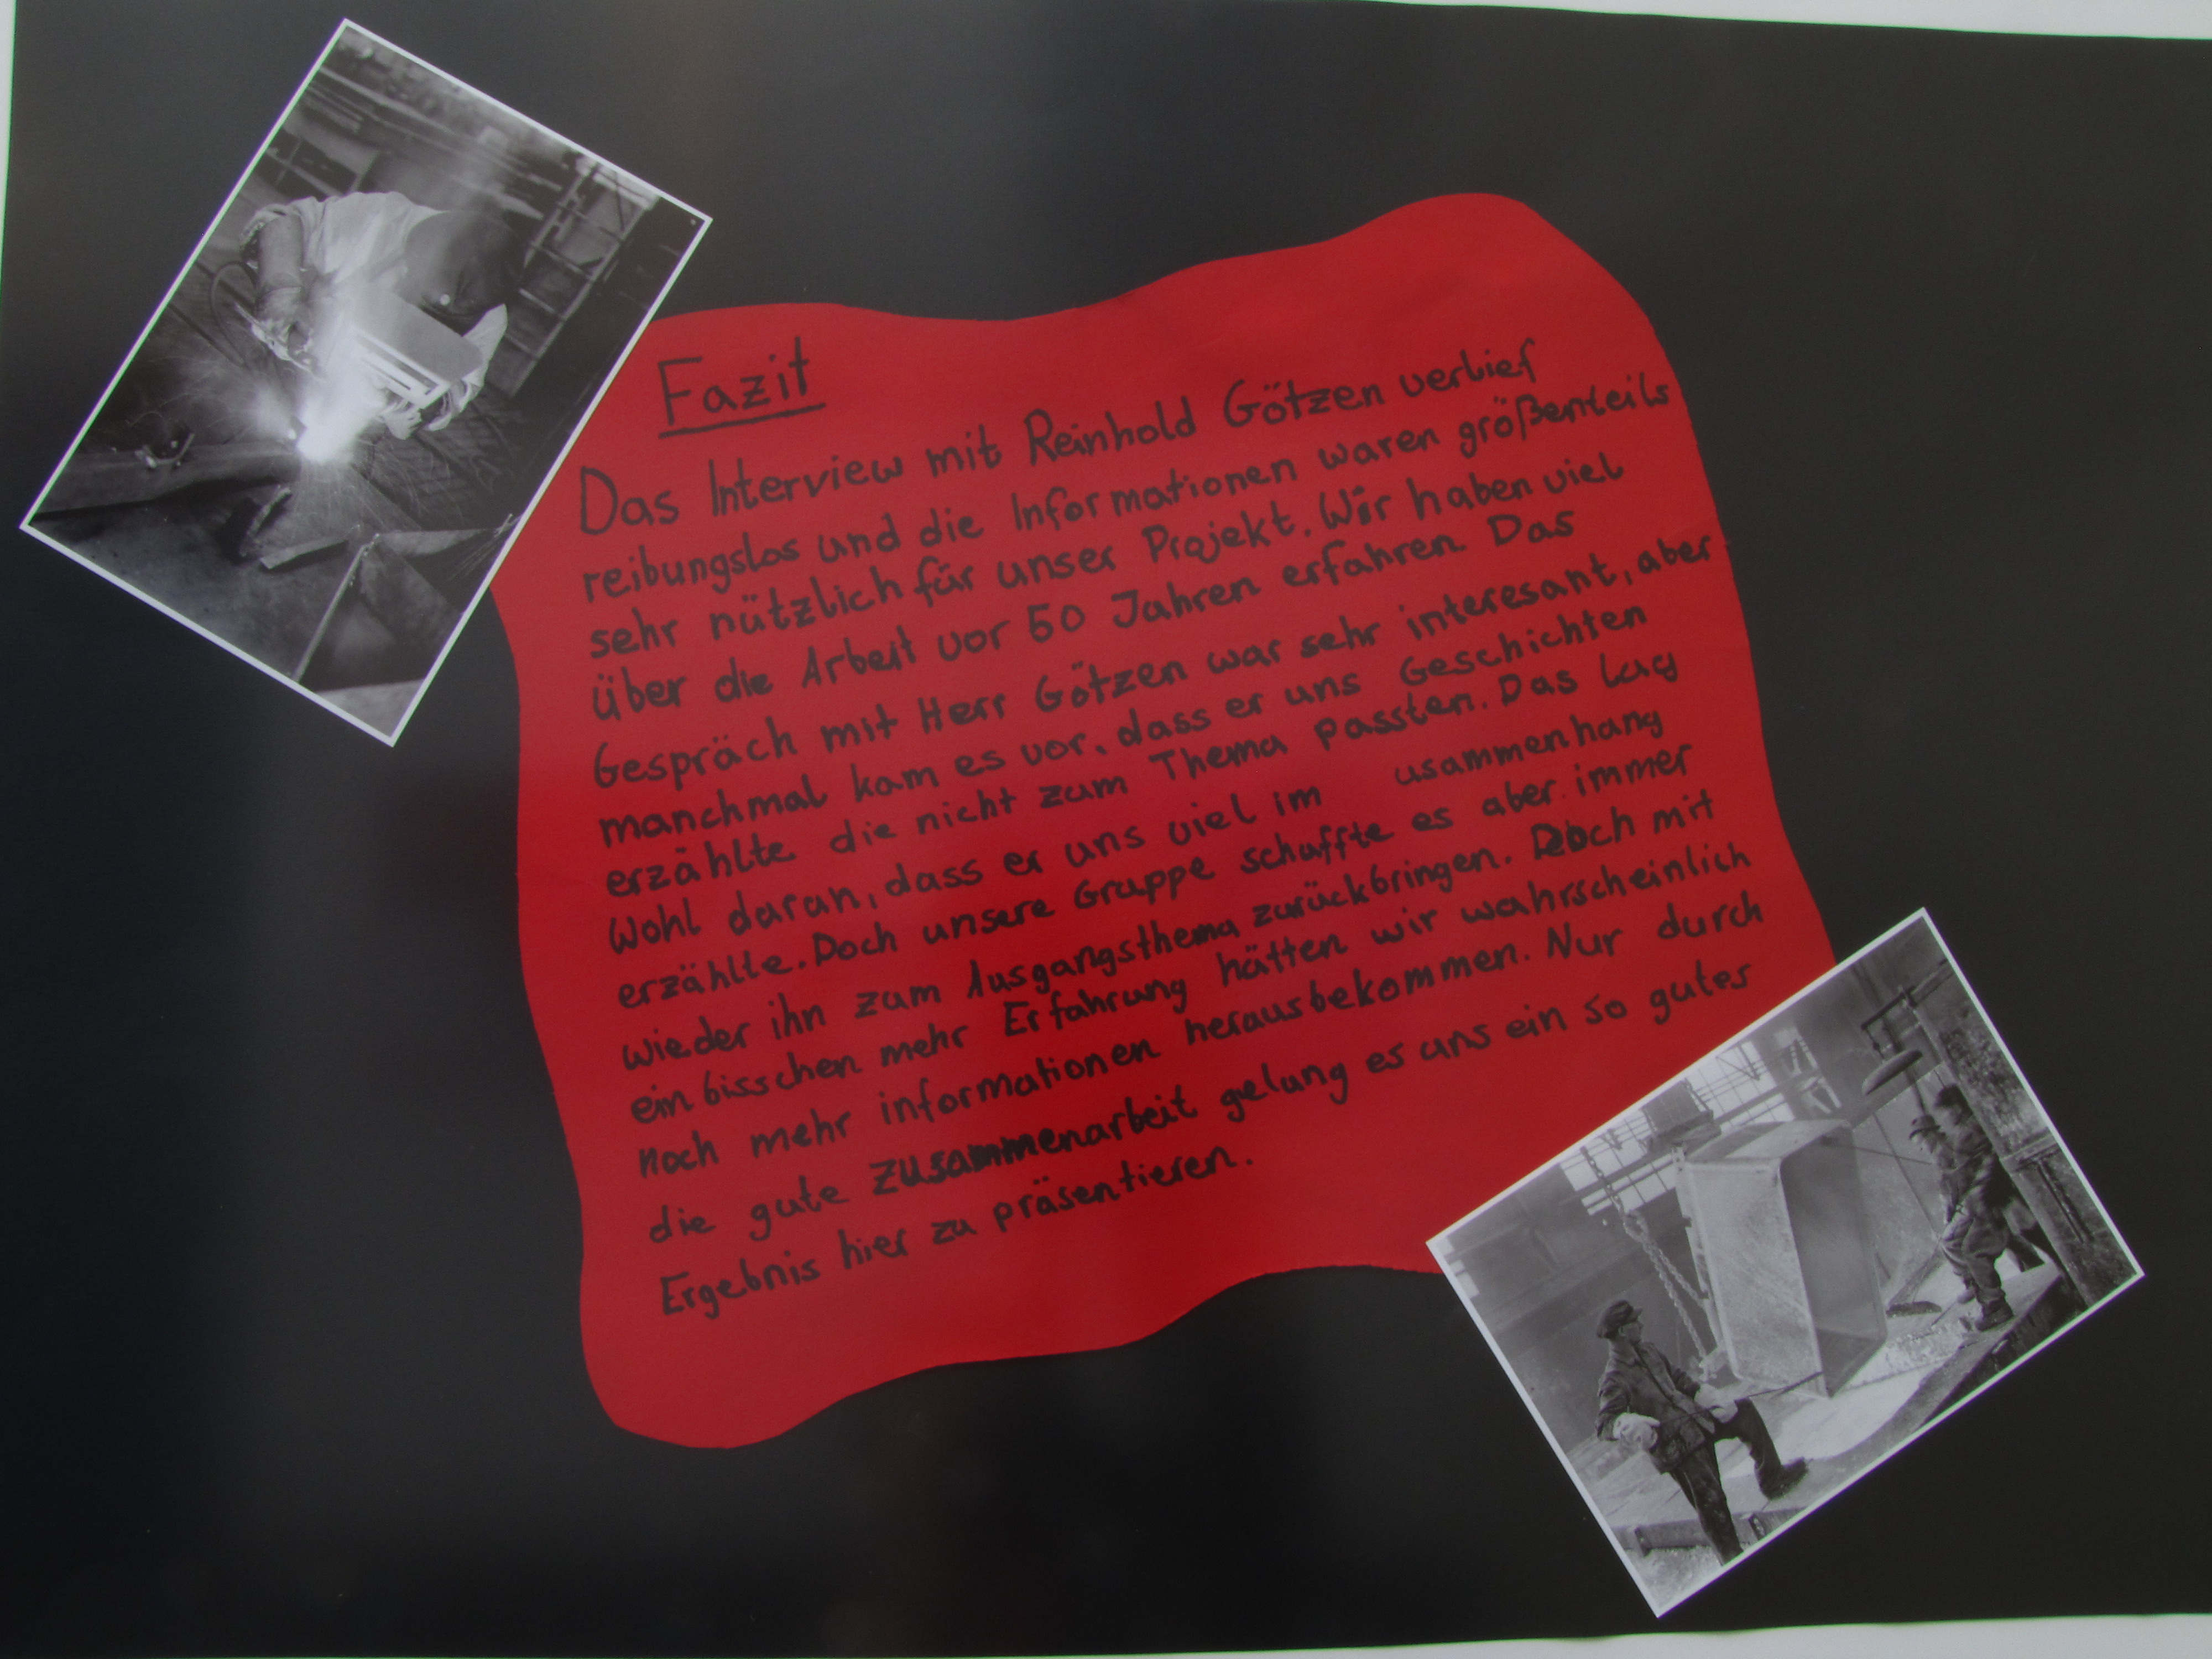 Fazit
Das Interview mit Reinhold Götzen verlief
reibungslos und die Informationen waren größenteils
sehr nützlich für unser Projekt. Wir haben viel
über die Arbeit vor 50 Jahren erfahren. Das
Gespräch mit Herr Götzen war sehr interesant, aber
manchmal kam es vor, dass er uns Geschichten
erzählte die nicht zum Thema passten. Das lag
Wohl daran, dass er uns viel im usammenhang
erzählte. Doch unsere Gruppe schaffte es aber immer
wieder ihn zum Ausgangsthema zurückbringen. Doch mit
ein bisschen mehr Erfahrung hätten wir wahrscheinlich
noch mehr informationen herausbekommen. Nur durch
die gute zusammenarbeit gelung es uns ein so gutes
Ergebnis hier zu präsentieren.